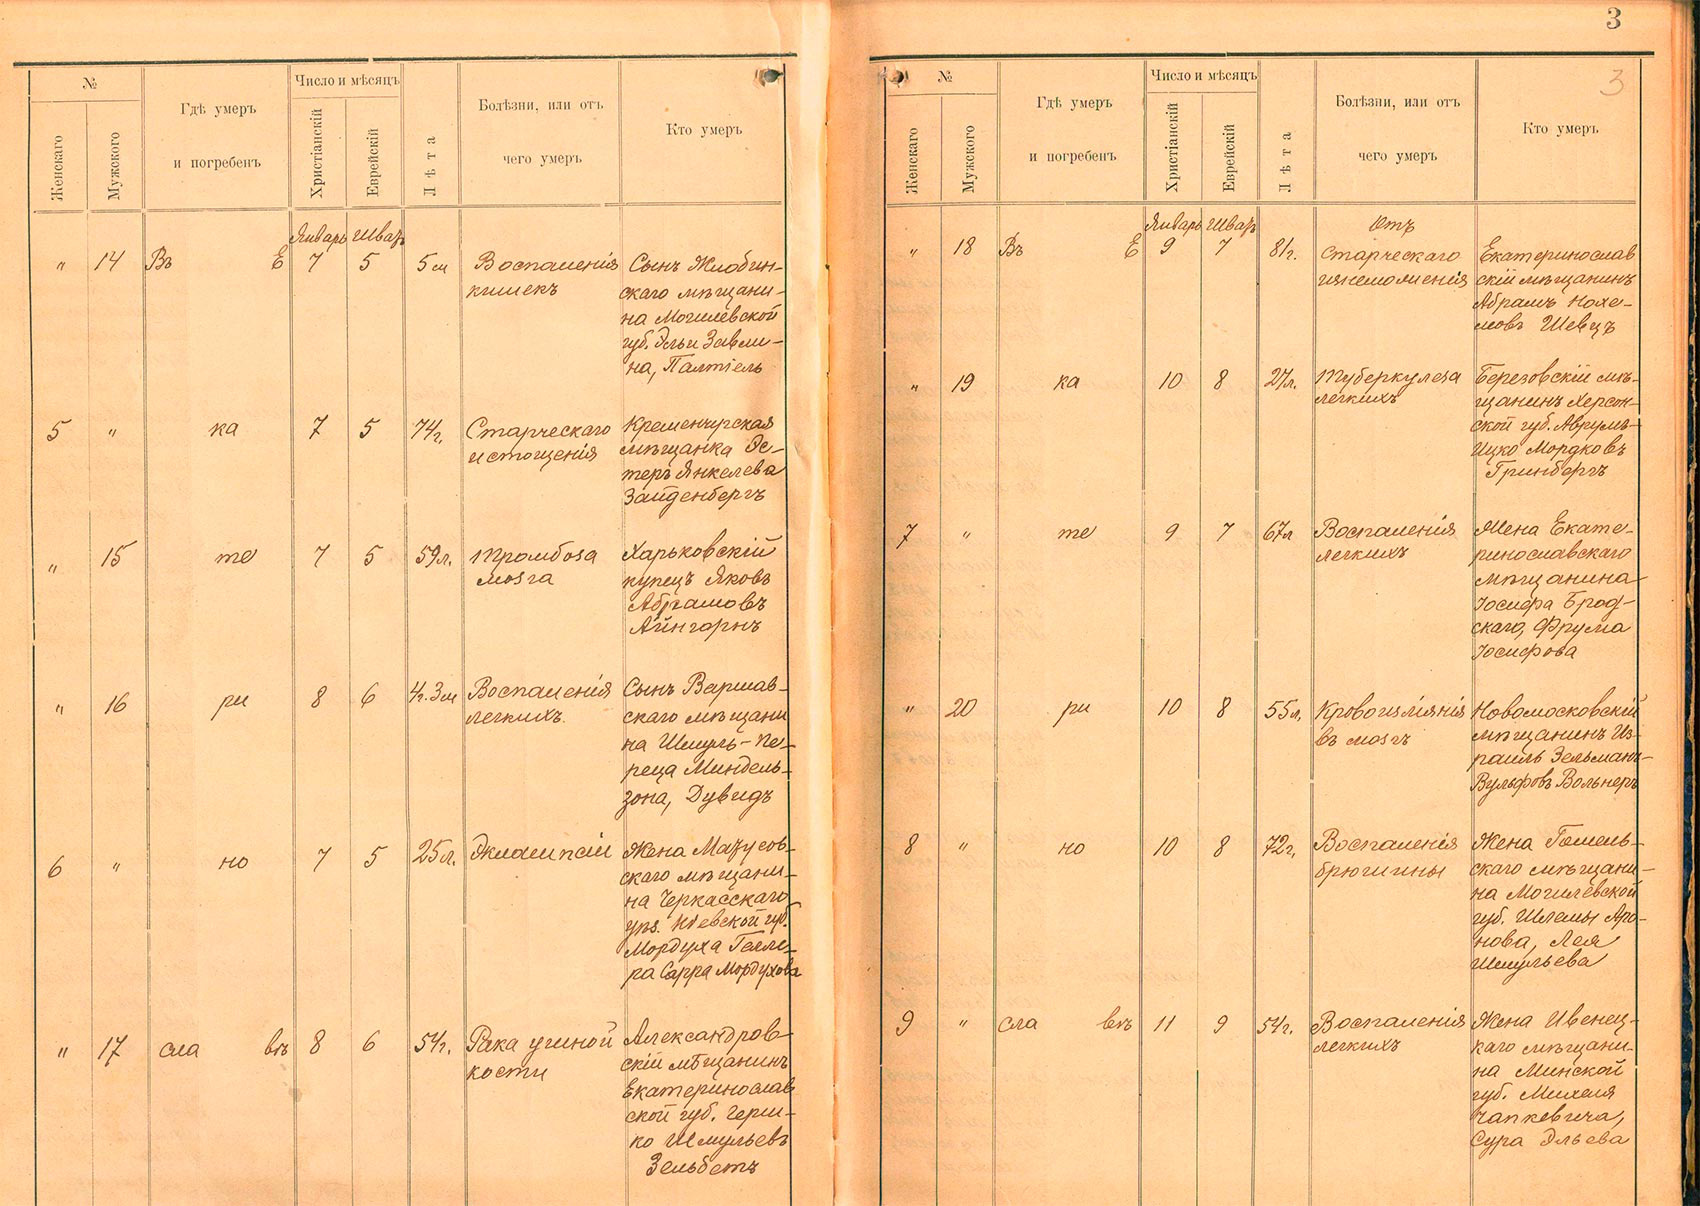 №
Женскаго
Мужского
Гдѣ умеръ
и погребенъ
Число и мѣсяцъ
Христіанскій
Еврейскій
Лѣта
Болѣзни, или отъ
чего умеръ
Кто умеръ
Январь Шватъ
„ 14 Въ Е 7 5 5 м
Воспаленія
кишекъ
Сынъ Жлобин-
скаго мѣщани-
на Могилевской
губ. Эльи Завли-
на, Палтіель
5 „ ка 7 5 74 г.
Старческаго
истощенія
Кременчугская
мѣщанка Эс-
теръ Янкелева
Зайденбергъ
„ 15 те 7 5 59 л.
Тромбоза
мозга
Харьковскій
купецъ Яковъ
Абрамовъ
Айнгорнъ
„ 16 ри 8 6 4 г. 3 м
Воспаленія
легкихъ.
Сынъ Варшав-
скаго мѣщани
на Шмуль-Пе-
реца Миндель-
зона, Дувидъ
6 „ но 7 5 25 л.
Эклампсіи
Жена Мазусов-
скаго мѣщани-
на Черкасскаго
уѣз. Кіевской губ.
Мордуха Гелле-
ра Сарра Мордухова
„ 17 сла въ 8 6 54 г.
Рака ушной
кости
Александров-
скій мѣщанинъ
Екатеринослав
ской губ. Герш-
ко Шмульевъ
Зельбетъ
3
3
№
Женскаго
Мужского
Гдѣ умеръ
и погребенъ
Число и мѣсяцъ
Христіанскій
Еврейскій
Лѣта
Болѣзни, или отъ
чего умеръ
Кто умеръ
Январь Шватъ
„ 18 Въ Е 9 7 81 г.
Отъ
старческаго
изнеможенія
Екатеринослав
скій мѣщанинъ
Абрамъ Нохе-
мовъ Шевцъ
„ 19 ка 10 8 27 л.
Туберкулеза
легкихъ
Березовскій мѣ-
щанинъ Херсон-
ской губ. Аврумъ-
Ицко Мордковъ
Гринбергъ
7 „ те 9 7 67 л
Воспаленія
легкихъ
Жена Екате-
ринославскаго
мѣщанина
Іосифа Брод-
скаго, Фрума
Іосифова
„ 20 ри 10 8 55 л.
Кровоизліянія
въ мозгъ
Новомосковскій
мѣщанинъ Из-
раиль Зельманъ-
Вульфовъ Вольнеръ
8 „ но 10 8 72 г.
Воспаленія
брюшины
Жена Гомель-
скаго мѣщани-
на Могилевской
губ. Шлемы Аро-
нова, Лея
Шмульева
9 „ сла въ 11 9 54 г.
Воспаленія
легкихъ
Жена Ивенец-
каго мѣщани-
на Минской
губ. Михеля
Чапкевича,
Сура Эльева